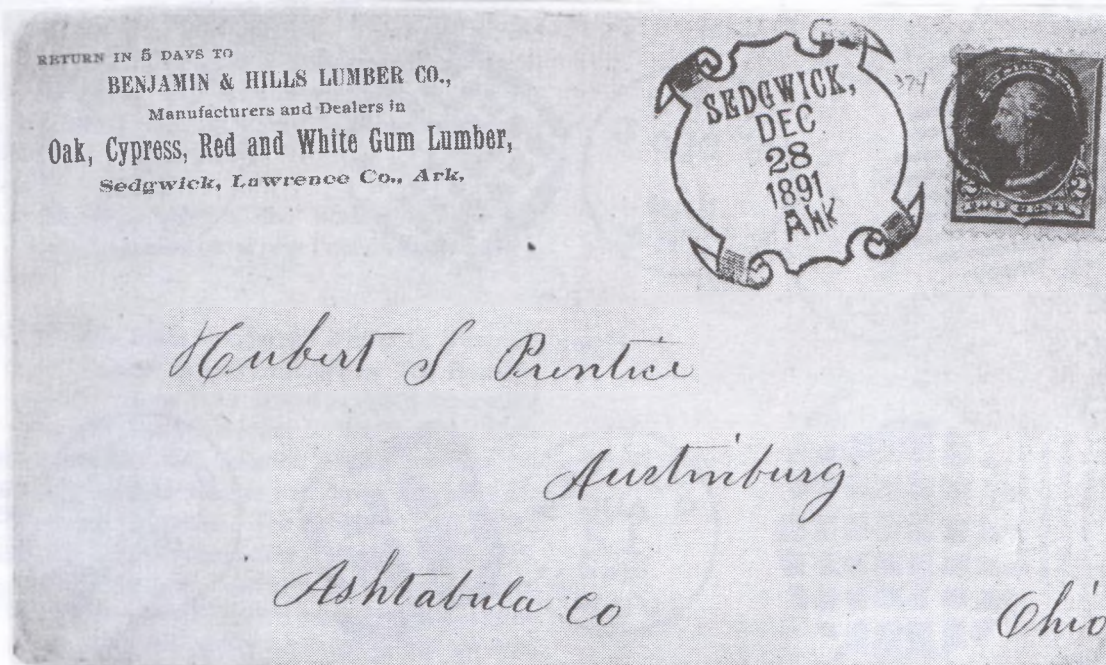 RETURN IN 5 DAYS TO
BENJAMIN & HILLS LUMBER CO.,
Manufacturers and Dealers in
Oak, Cypress, Red and White Gum Lumber,
Sedgwick, Lawrence Co., Ark.
SEDGWICK,
DEC
28
1891
Ark
374
2 2
TWO CENTS
Hubert S Prentice
Austinburg
Ashtabula Co
Ohio